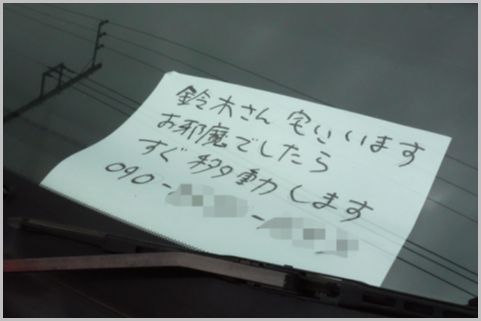 鈴木さん宅にいます
お邪魔でしたら
すぐ移動します
090-